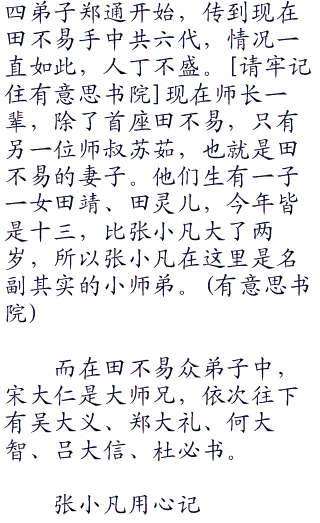 四弟子郑通开始，传到现在
田不易手中共六代，情况一
直如此，人丁不盛。[请牢记
住有意思书院]现在师长一
辈，除了首座田不易，只有
另一位师叔苏茹，也就是田
不易的妻子。他们生有一子
一女田靖、田灵儿，今年皆
是十三，比张小凡大了两
岁，所以张小凡在这里是名
副其实的小师弟。(有意思书
院)
而在田不易众弟子中，
宋大仁是大师兄，依次往下
有吴大义、郑大礼、何大
智、吕大信、杜必书。
张小凡用心记